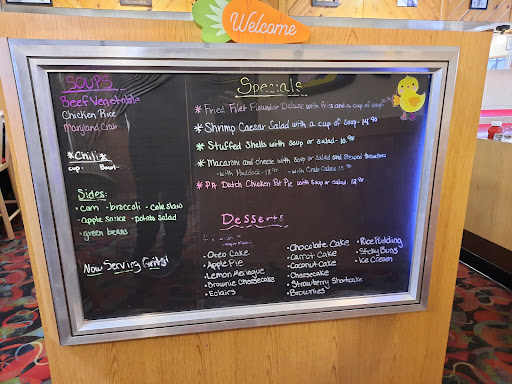 Welcome
SOUPS
Beef Vegetable
Chicken Rice
Maryland Crab
*Chili*
cup: Bowl-
Sides:
• corn • broccoli • cole slaw
• apple sauce • potato salad
• green beans
Now Serving Grits!
Specials
* Fried Filet Flounder Deluxe with fries and a cup of soup-
* Shrimp Caesar Salad with a cup of soup- 14.90
* Stuffed Shells with soup or salad- 10.90
* Macaroni and cheese with soup or salad and stewed tomatoes
- with Haddock - - with Crab Cakes
* PA Dutch Chicken Pot Pie with soup or salad -
Desserts
• Oreo Cake
• Apple Pie
• Lemon Meringue
• Brownie Cheesecake
• Eclairs
• Chocolate Cake
• Carrot Cake
• Coconut Cake
• Cheesecake
• Strawberry Shortcake
• Brownies
• Rice Pudding
• Sticky Buns
• Ice Cream